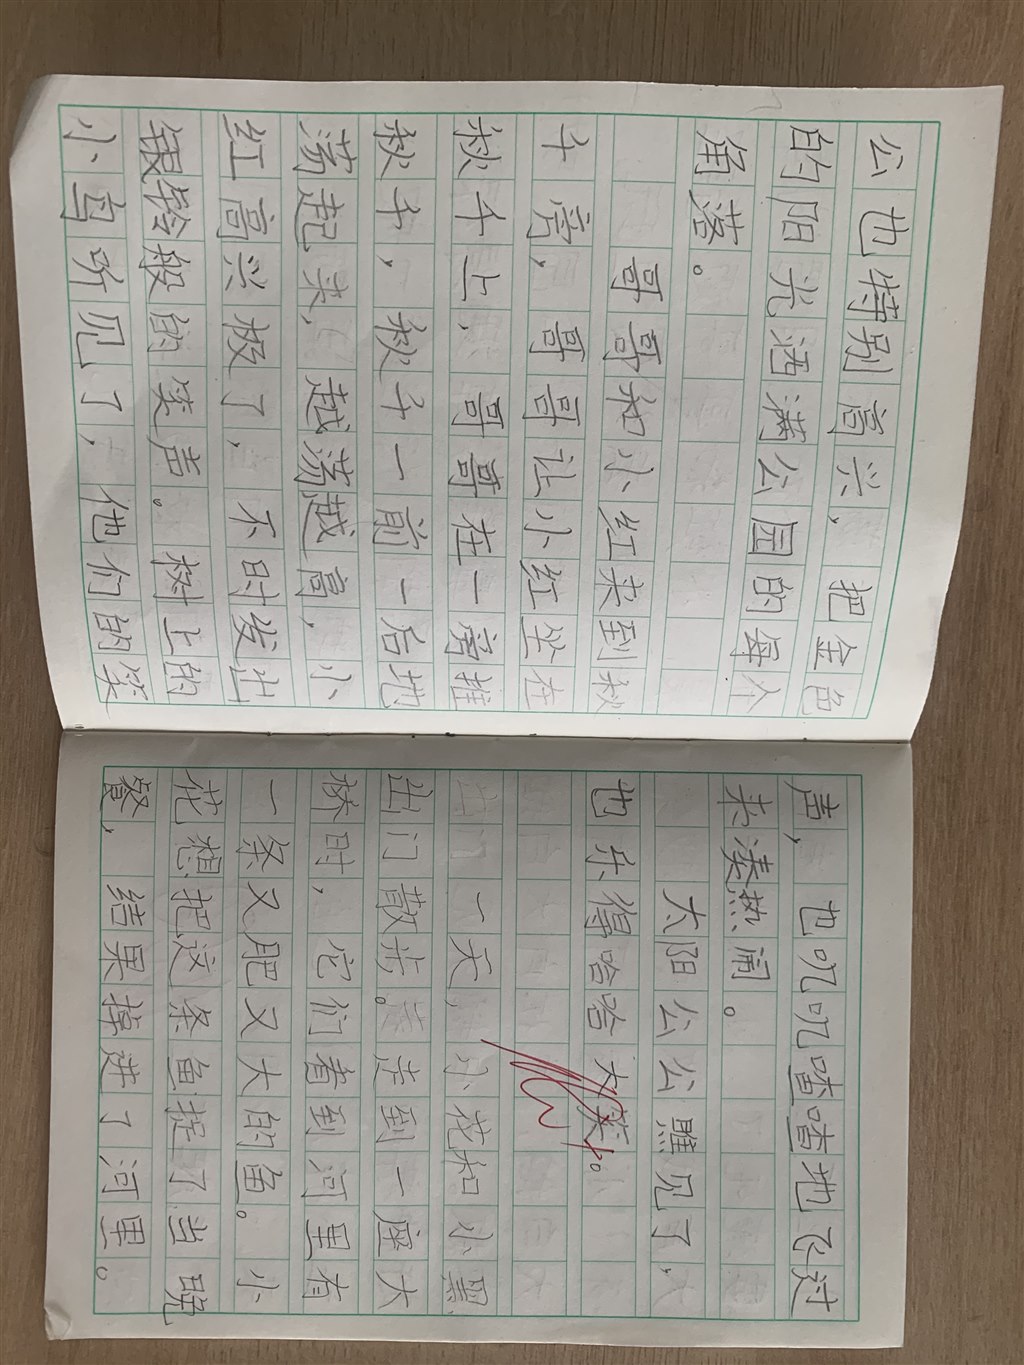 公也特别高兴，把金色
的阳光洒满公园的每个
角落。
哥哥和小红来到秋
千旁，哥哥让小红坐在
秋千上，哥哥在一旁推
秋千，秋千一前一后地
荡起来，越荡越高，小
红高兴极了，不时发出
银铃般的笑声。树上的
小鸟听见了，他们的笑
声，也叽叽喳喳地飞过
来凑热闹。
太阳公公瞧见了，
也乐得哈哈大笑。
一天，小花和小黑
出门散步。走到一座大
林时，它们看到河里有
一条又肥又大的鱼。小
花想把这条鱼捉了当晚
餐，结果掉进了河里。